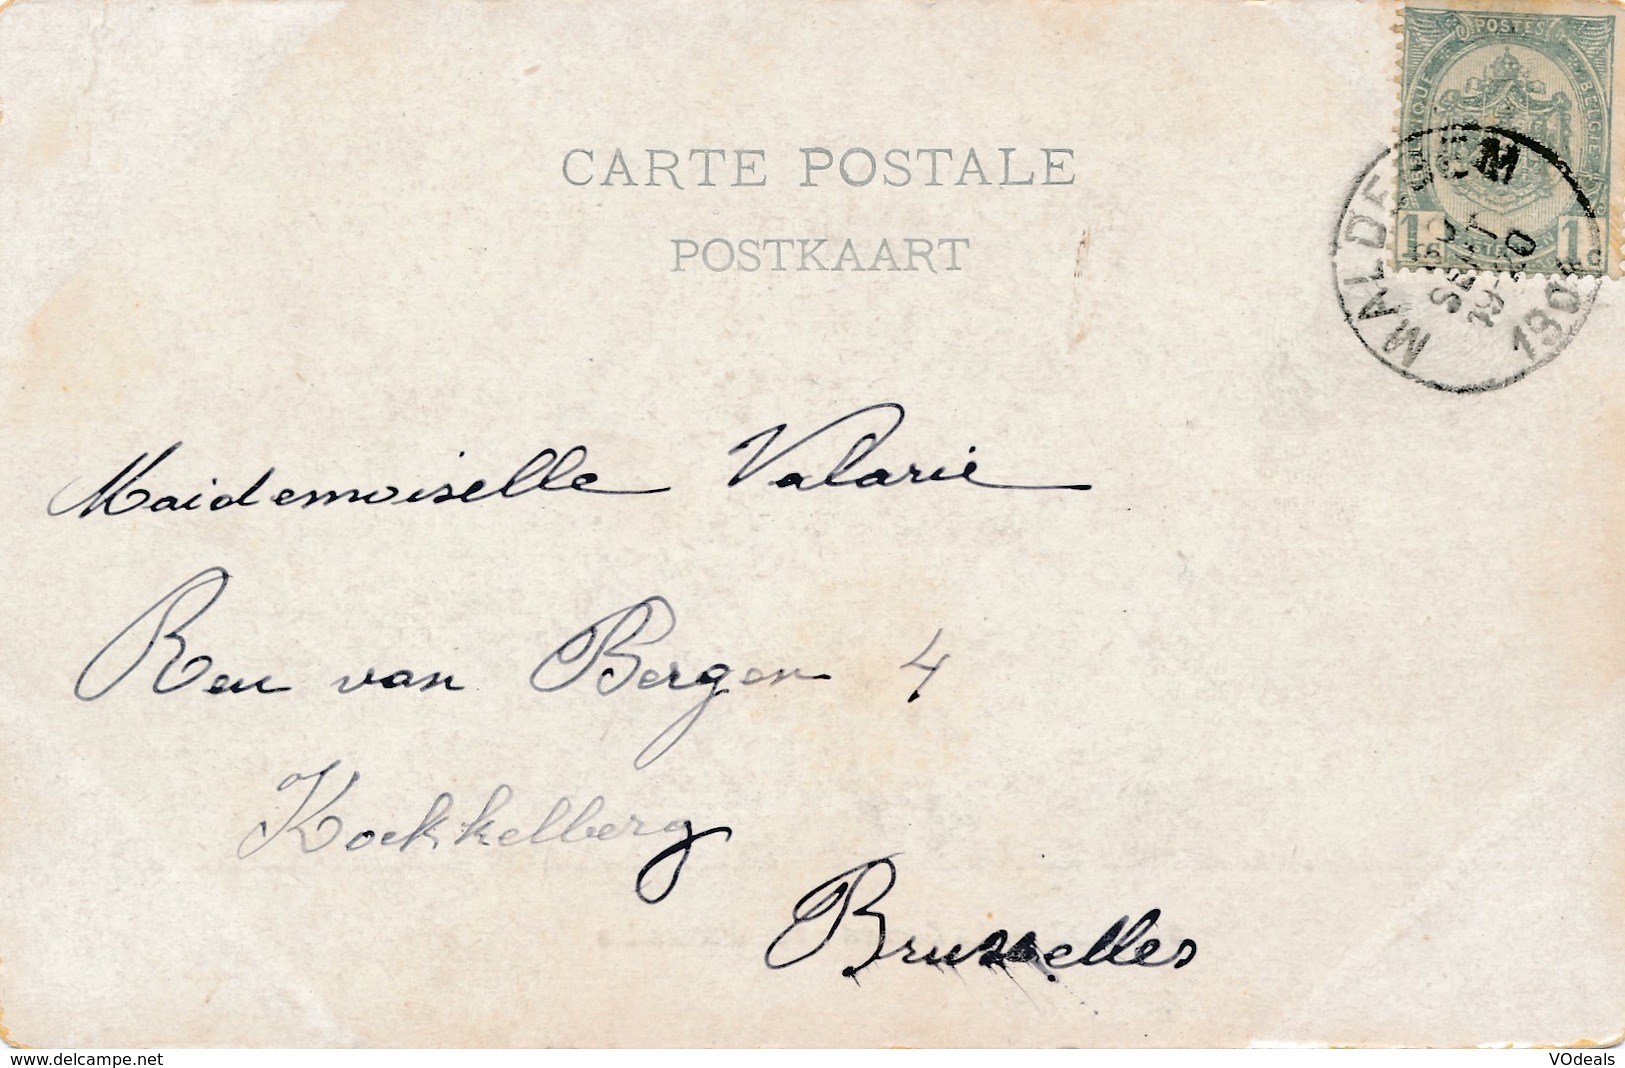 CARTE POSTALE
POSTKAART
POSTES
BELGIE
1 1
MALDEGEM
SEPT
19-20
Maidemoiselle Valarie
Reu van Bergen 4
Koekkelberg
Bruxelles
www.delcampe.net
VOdeals